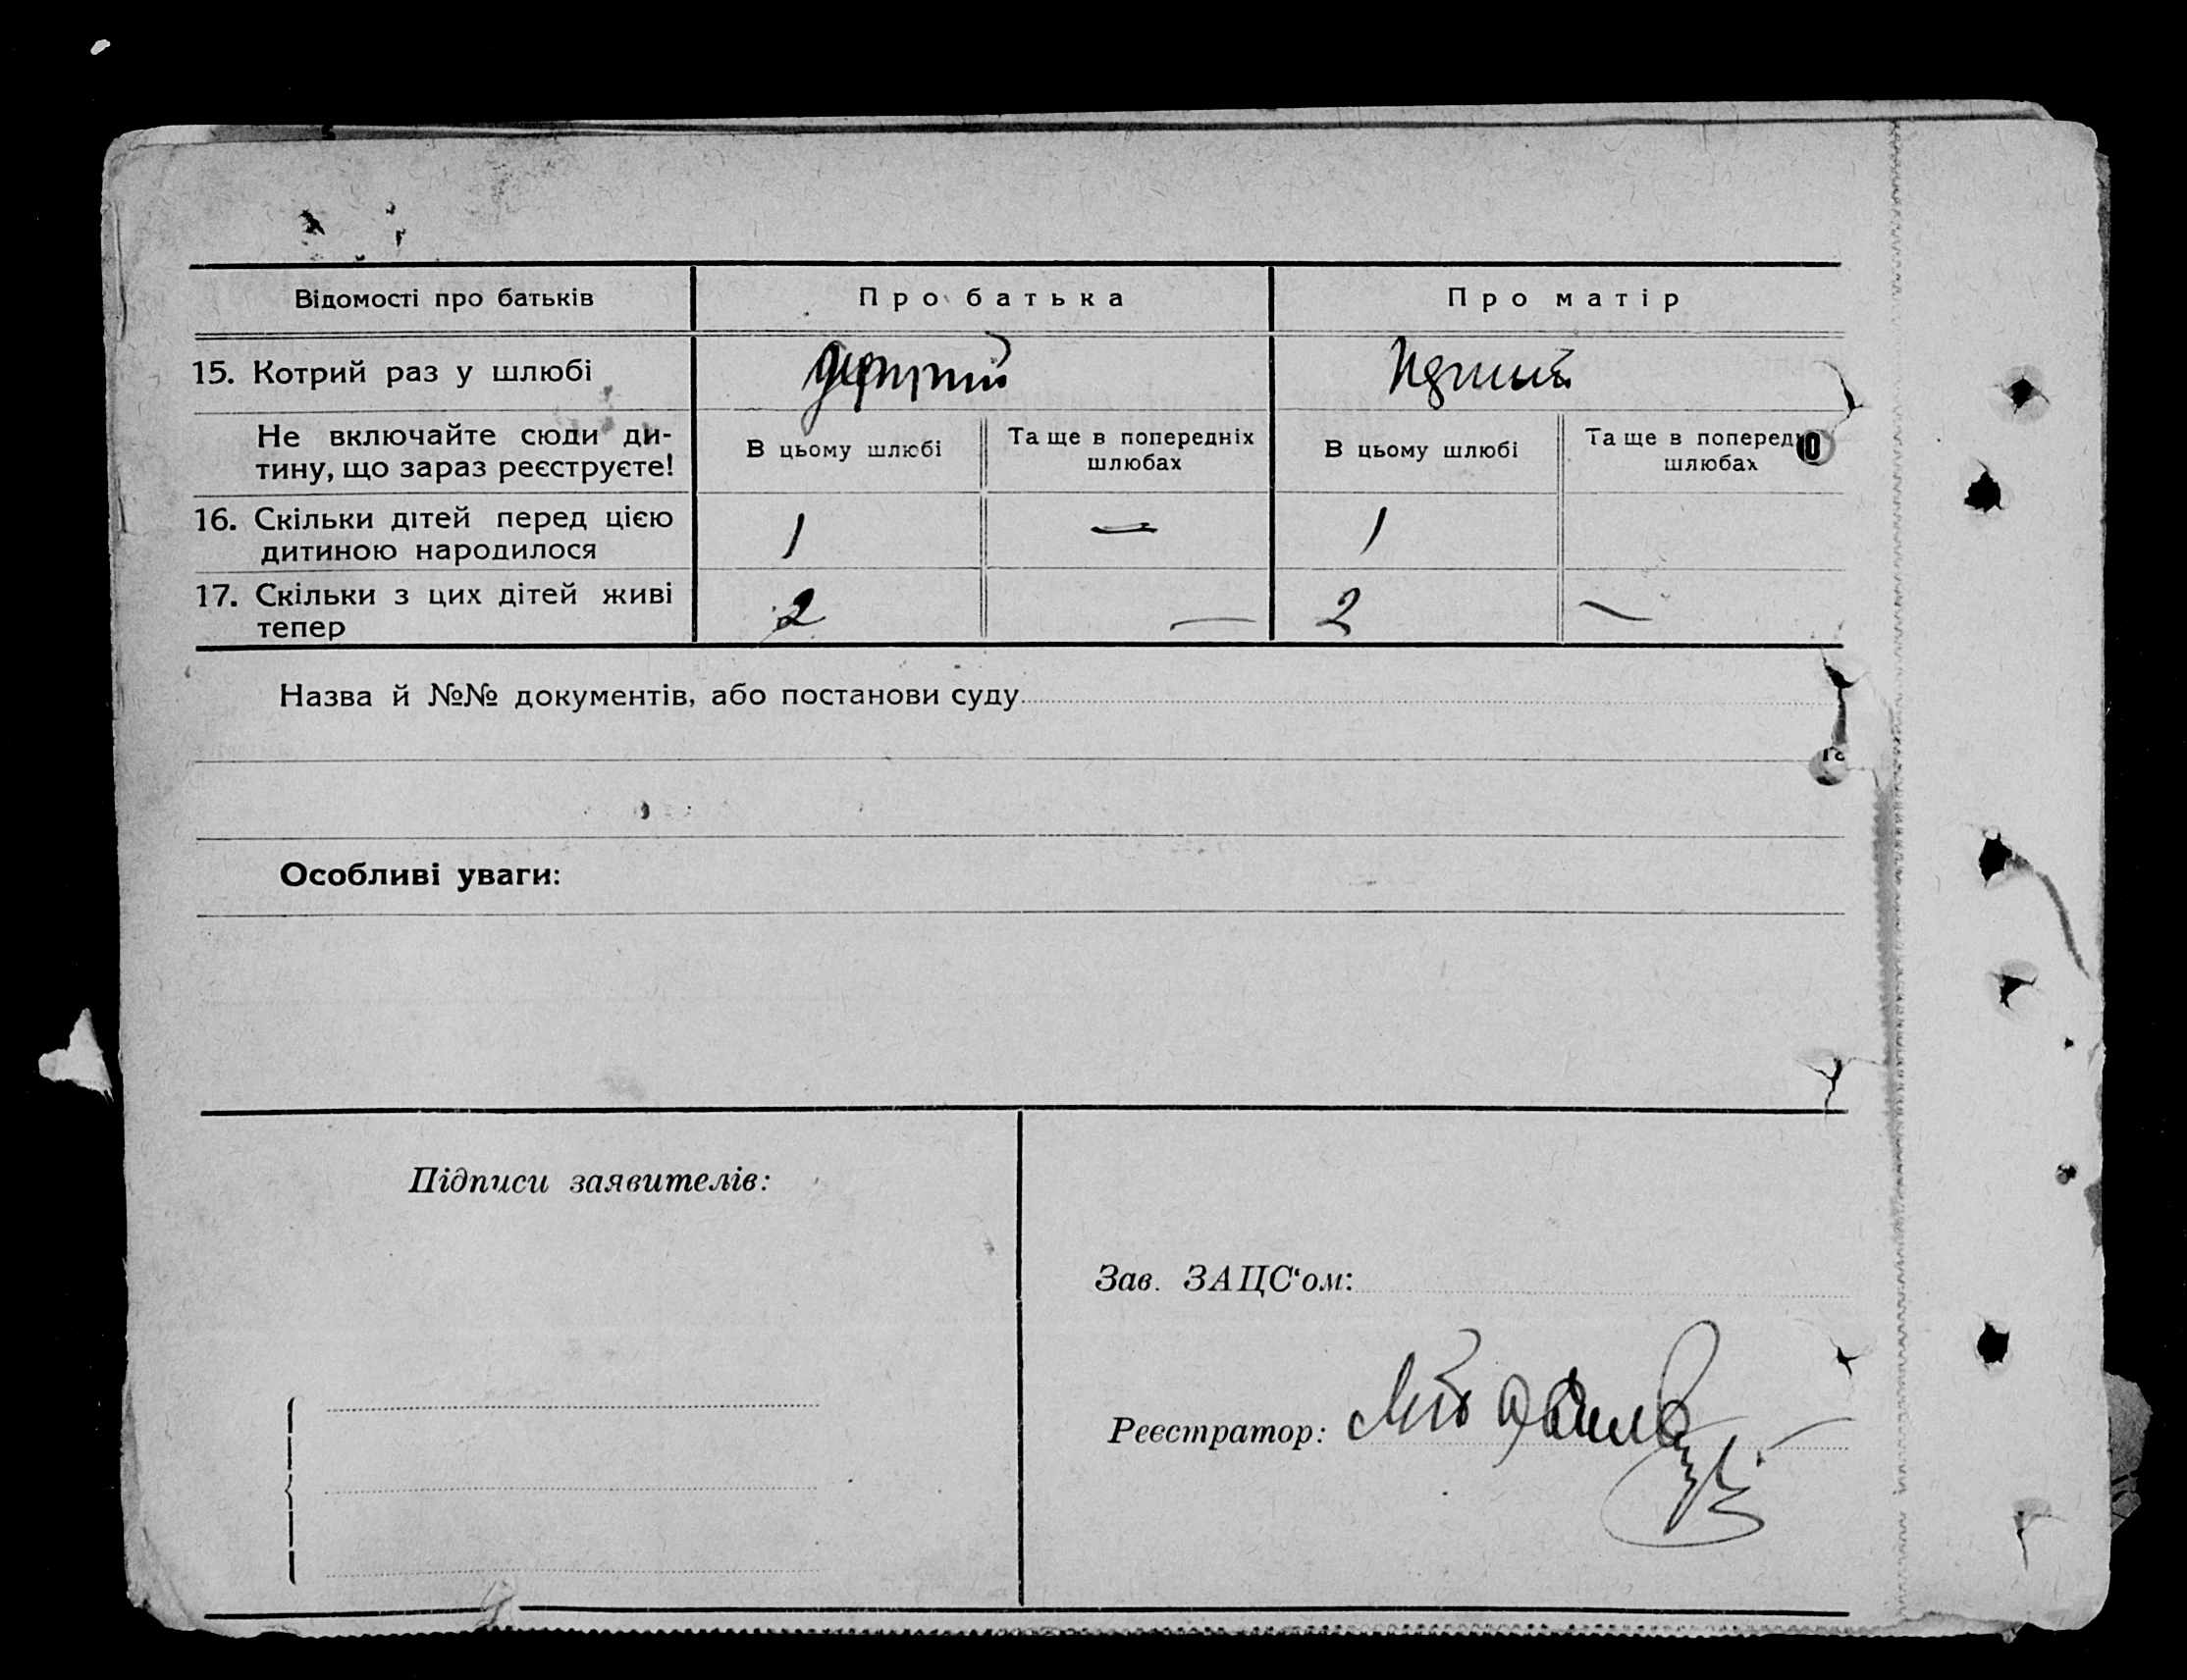 Відомості про батьків
Про батька
Про матір
15. Котрий раз у шлюбі
другий
Не включайте сюди ди-
тину, що зараз реєструєте!
В цьому шлюбі
Та ще в попередніх
шлюбах
В цьому шлюбі
Та ще в
шлюбах
16. Скільки дітей перед цією
дитиною народилося
1
—
1
17. Скільки з цих дітей живі
тепер
2
—
2
—
Назва й №№ документів, або постанови суду
Особливі уваги:
Підписи заявителів:
Зав. ЗАЦС‘ом:
Реєстратор: